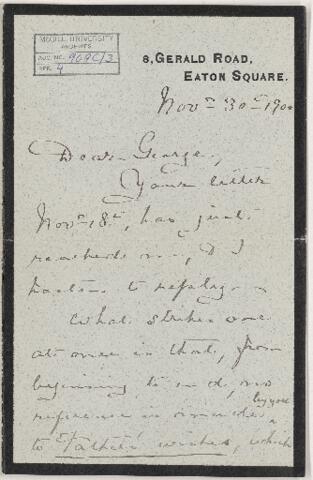 McGILL UNIVERSITY
ARCHIVES
ACC. NO. 909C/3
REF. 4
8, GERALD ROAD,
EATON SQUARE.
Nov. 30th 1900
Dear George,
Your letter
Nov. 18th, has just
reached me, & I
hasten to reply.
What strikes one
at once is that, from
beginning to end, no
reference is made by you
to Father's wishes, which